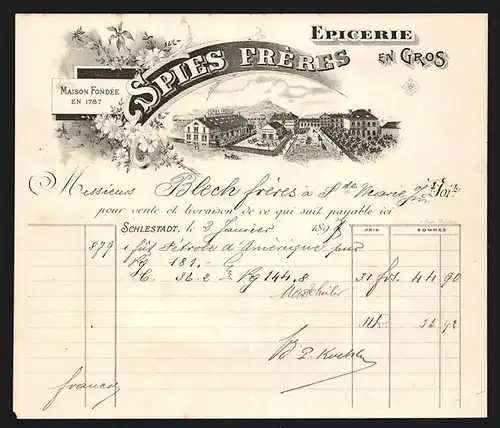 EPICERIE
EN GROS
SPIES FRÈRES
MAISON FONDÉE
EN 1787
Messieurs Blech frères à Ste Marie
pour vente et livraison de ce qui suit payable ici
SCHLESTADT, le 2 Janvier 189
PRIX SOMMES
879 1 fût Pétrole d'Amérique pur
Kg 181.-
36.2 Kg 144.8 31 frs. 44 90
Mk. 
francs